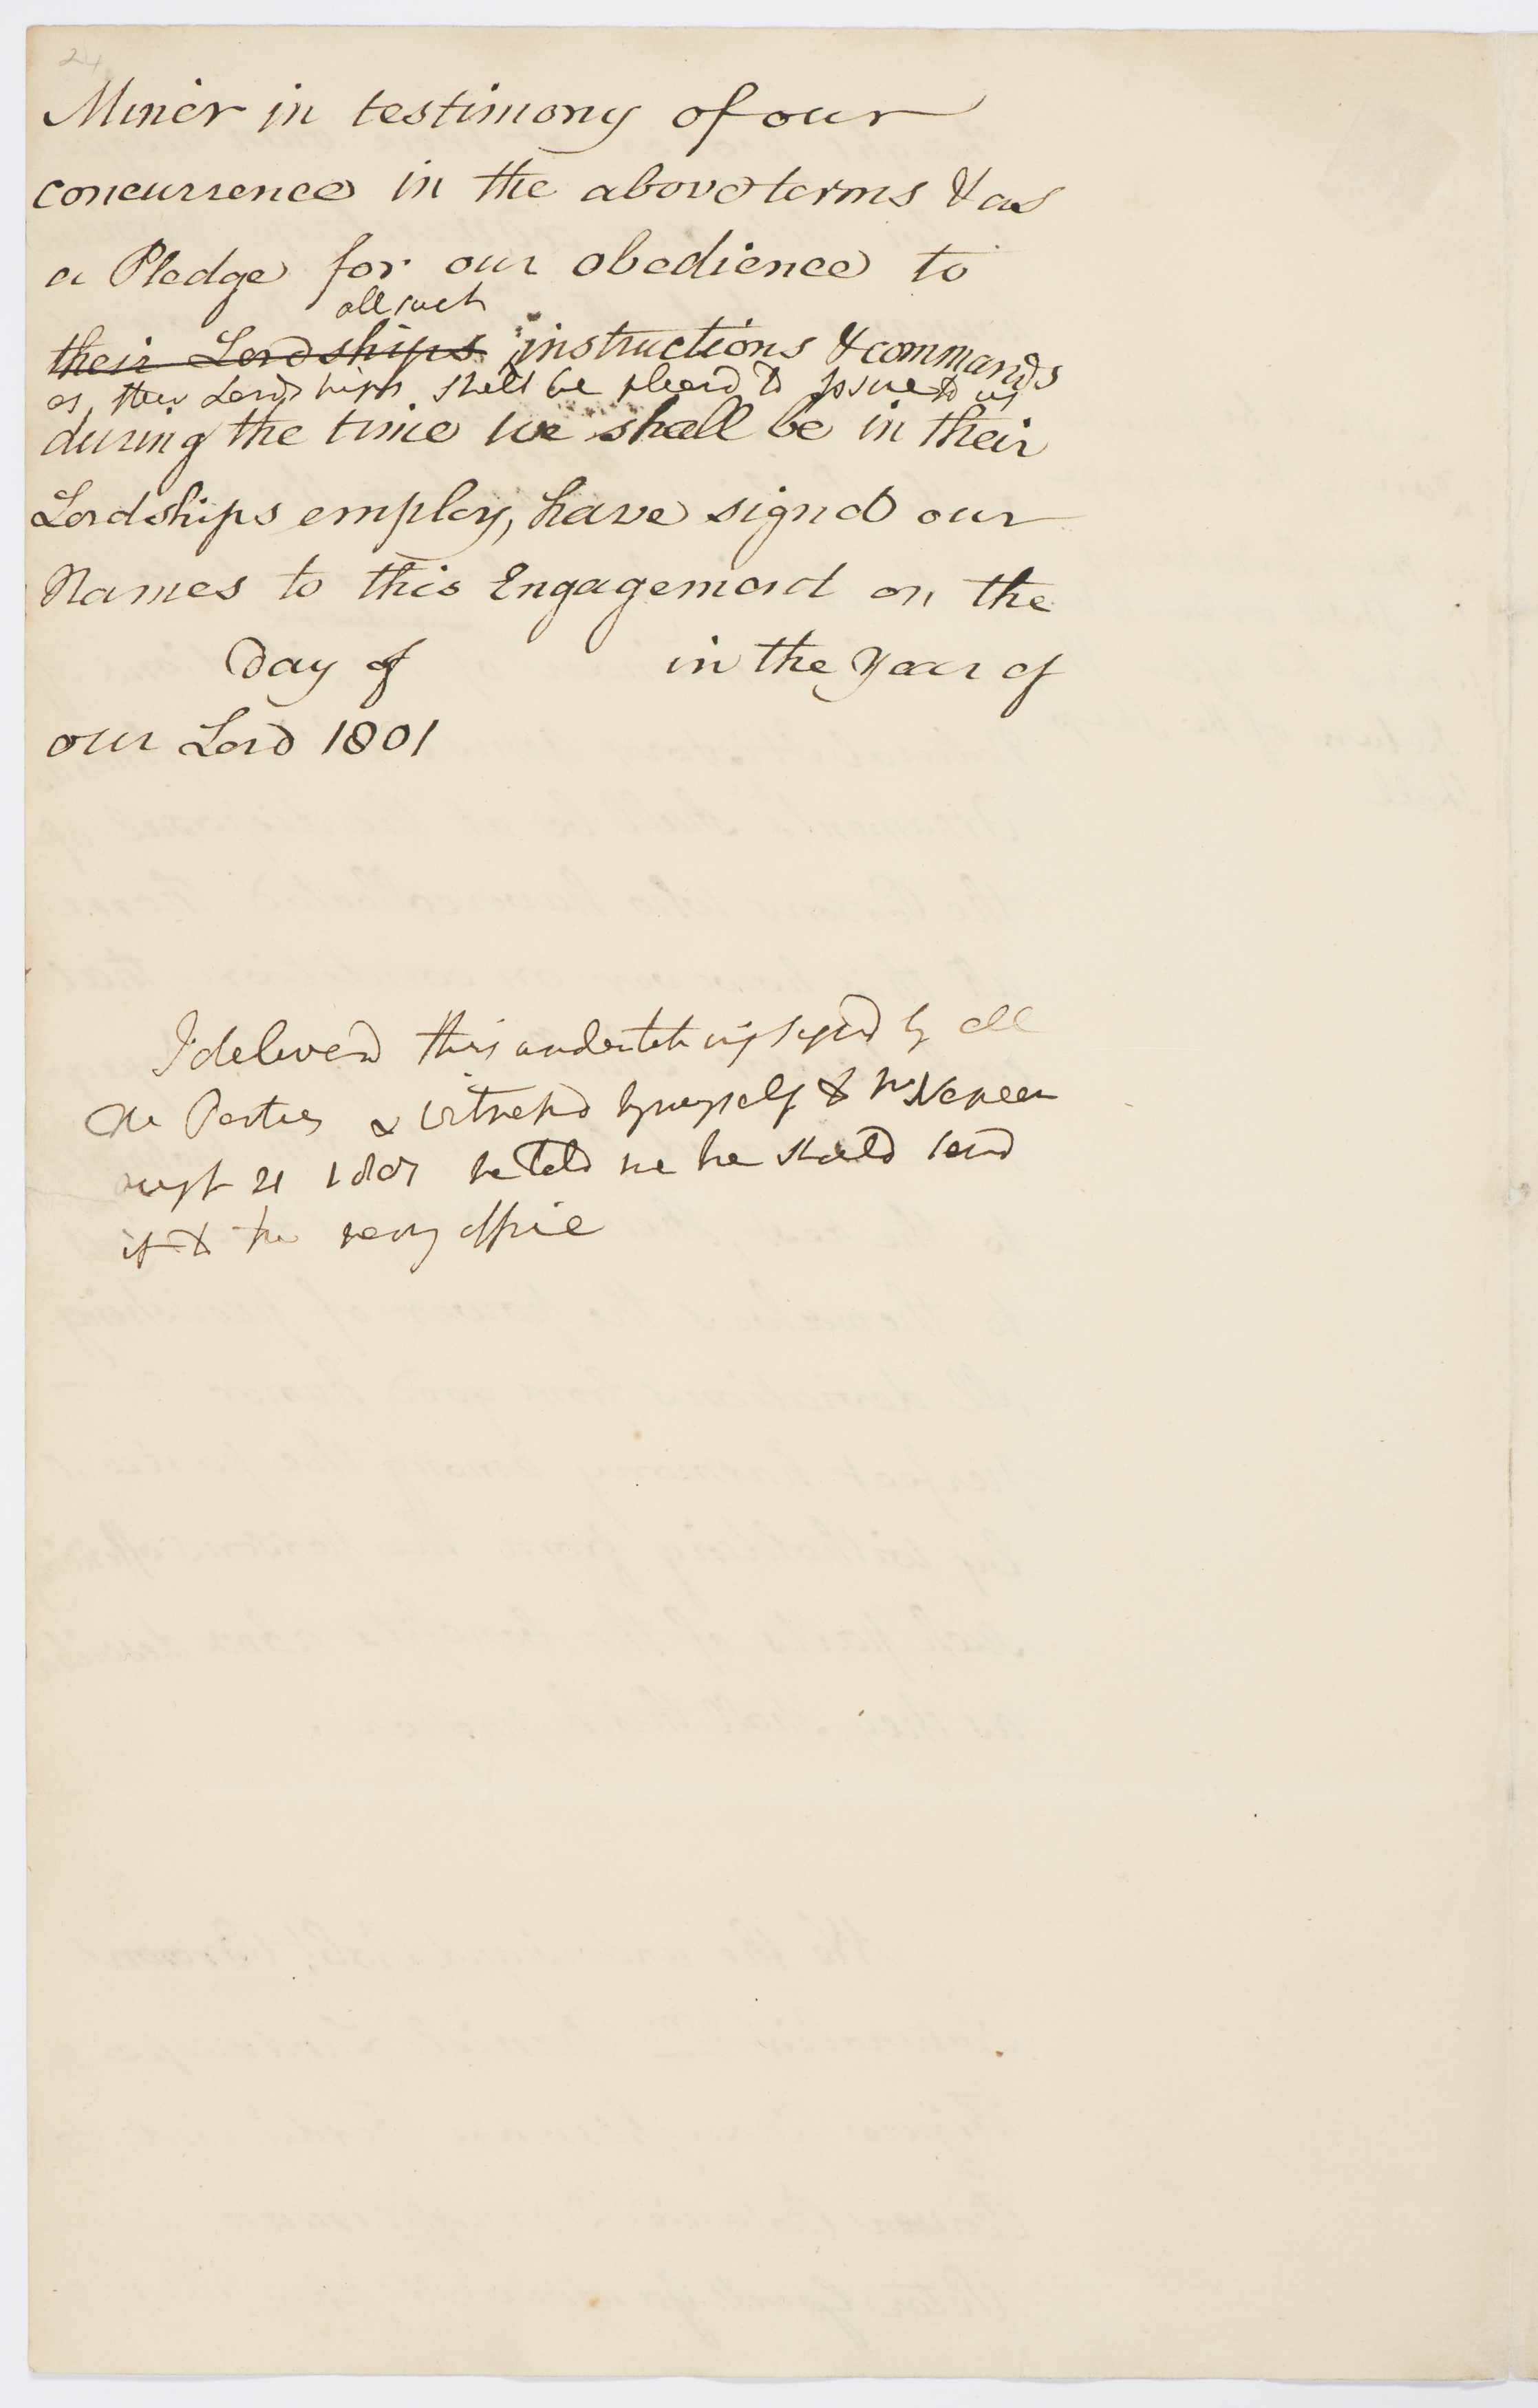 24
Miner in testimony of our
concurrence in the above terms & as
a Pledge for our obedience to
all such
their Lordships instructions & commands
as their Lordships shall be pleasd to issue to us
during the time we shall be in their
Lordships employ, have signd our
Names to this Engagement on the
Day of in the Year of
our Lord 1801
I deliverd this undertaking signd by all
the Parties & witnessd by myself to Mr Nepean
21 1801 he told me he should send
it to the navy office